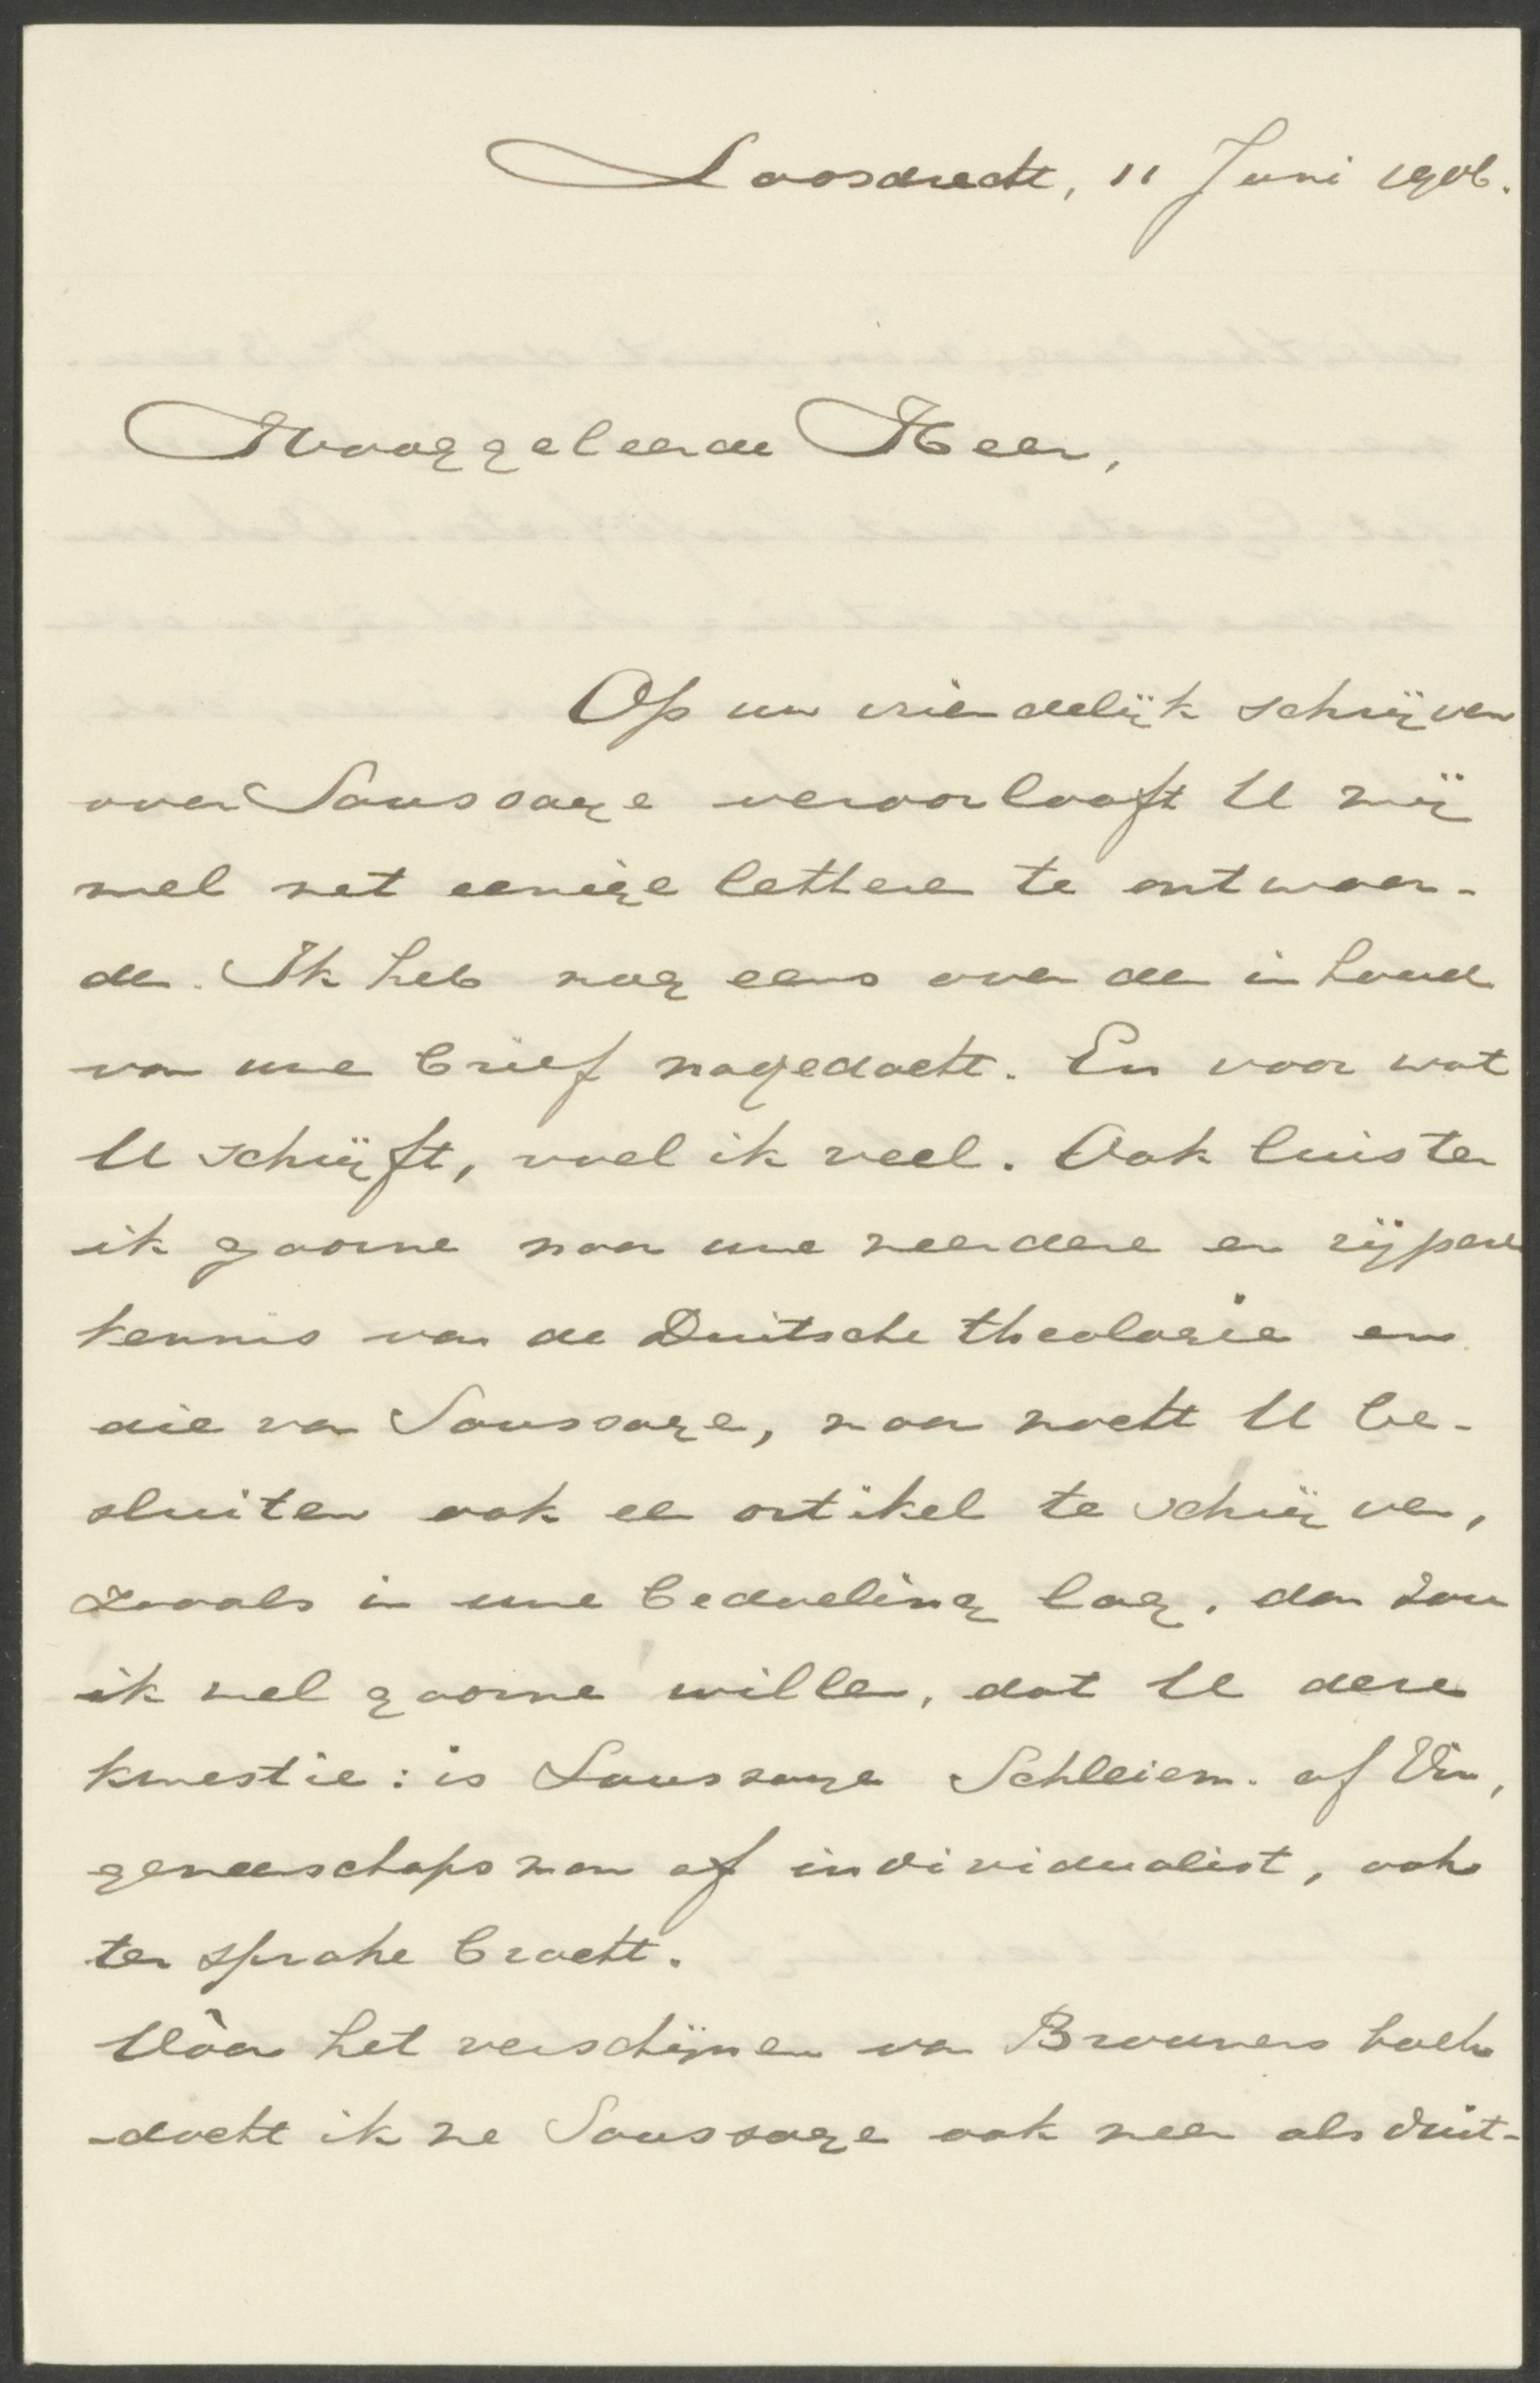 Loosdrecht, 11 Juni 1906.
Hooggeleerde Heer,
Op uw vriendelijk schrijven
over Saussaye veroorlooft U mij
wel met eenige letters te antwoor-
den. Ik heb nog eens over den inhoud
van uwe brief nagedacht. En voor wat
U schrijft, voel ik veel. Ook luister
ik gaarne naar uwe meerdere en rijpere
kennis van de Duitsche theologie en
die van Saussaye, maar mocht U be-
sluiten ook een artikel te schrijven,
zooals in uwe bedoeling lag, dan zou
ik wel gaarne willen, dat U deze
kwestie: is Saussaye Schleierm. of Vin.,
gemeenschapsman of individualist, ook
ter sprake bracht.
Vóór het verschijnen van Brouwers boek
dacht ik me Saussaye ook meer als duit-